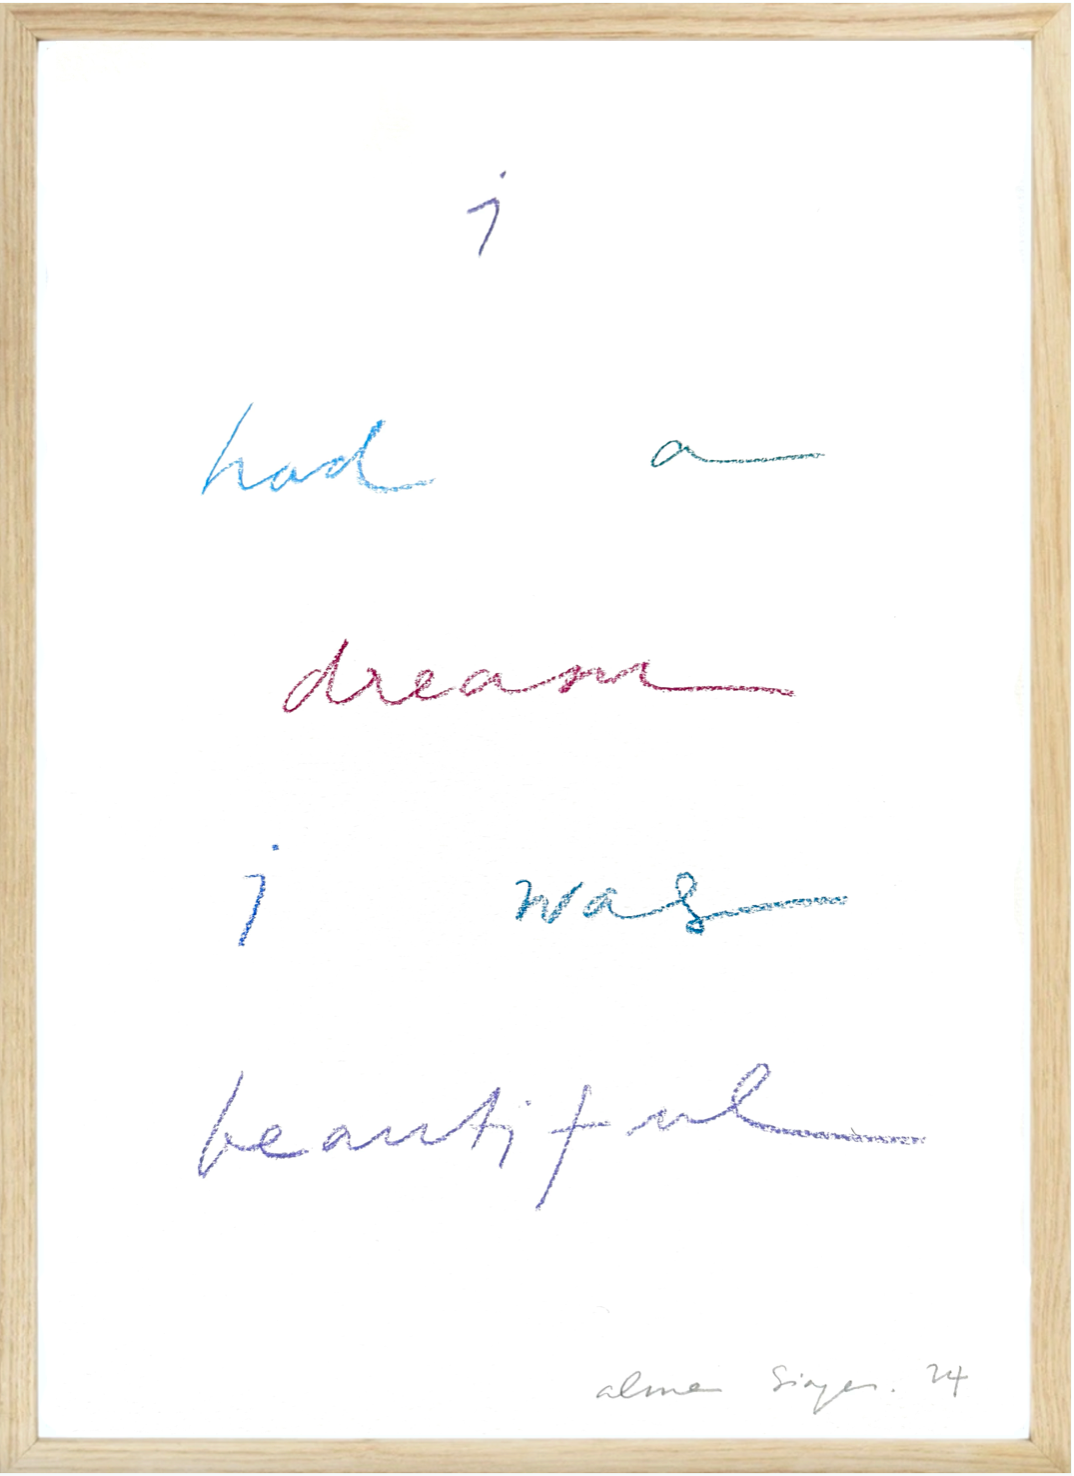 i
had a
dream
i was
beautiful
alma Singer. 24